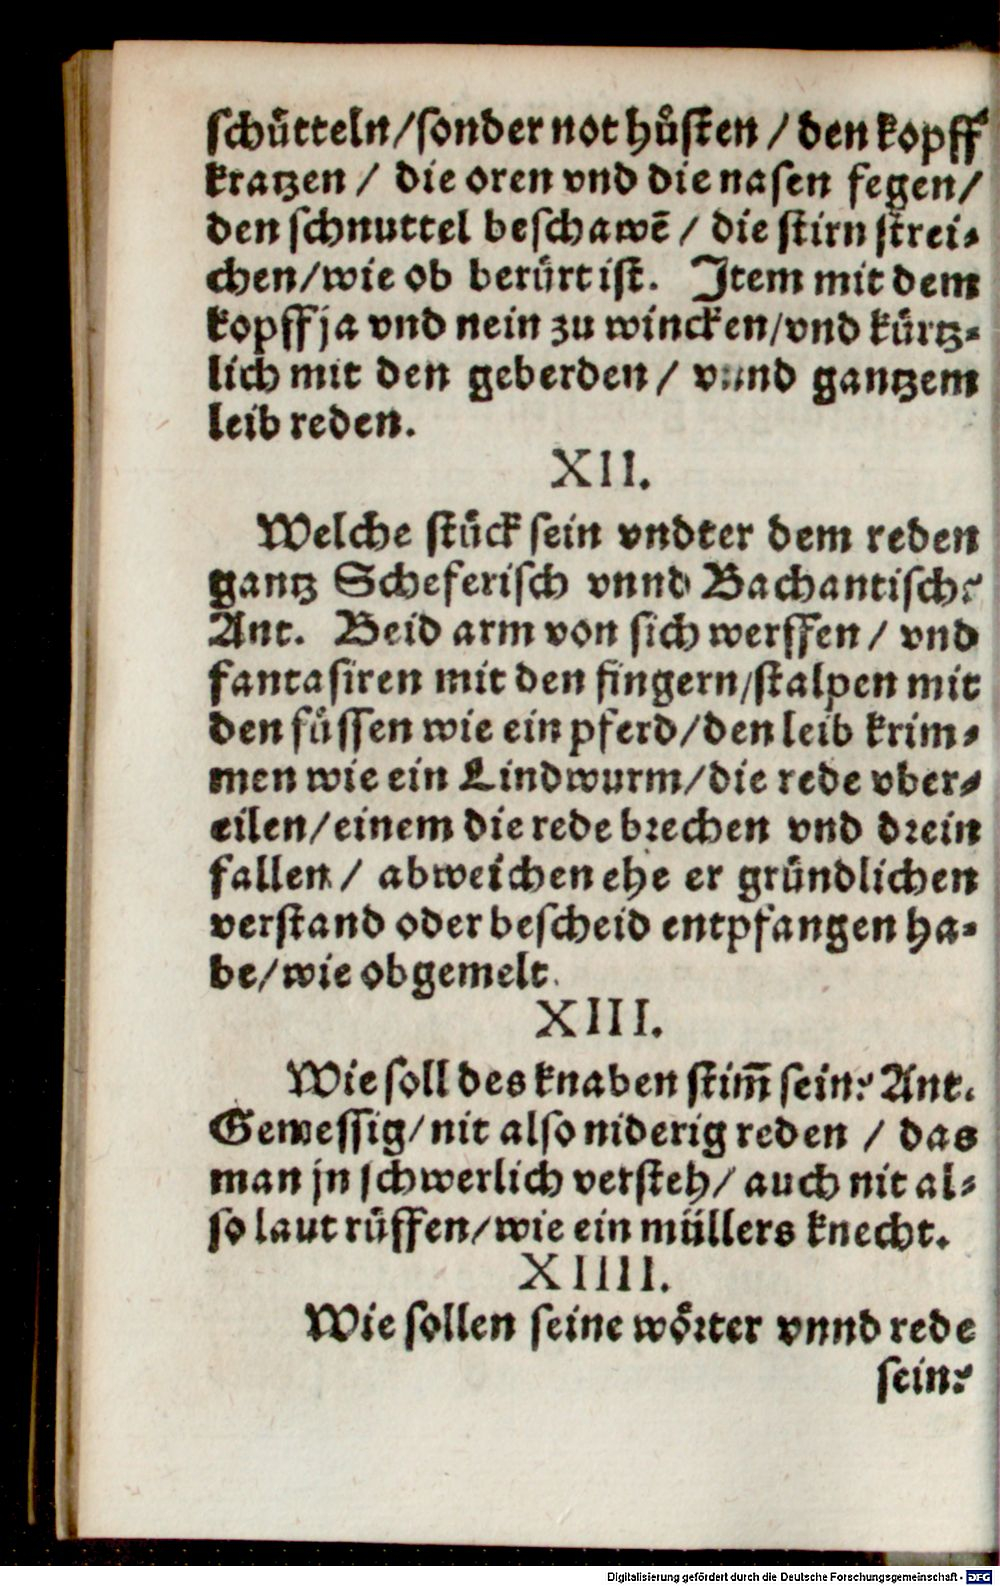 schuͤtteln/sonder not huͦsten / den kopff
kratzen / die oren vnd die nasen fegen/
den schnuttel beschawē / die stirn strei⸗
chen/wie ob beruͤrt ist. Item mit dem
kopff ja vnd nein zu wincken/vnd kuͤrtz⸗
lich mit den geberden / vnnd gantzem
leib reden.
XII.
Welche stuͤck sein vndter dem reden
gantz Scheferisch vnnd Bachantisch?
Ant. Beid arm von sich werffen / vnd
fantasiren mit den fingern/stalpen mit
den fuͤssen wie ein pferd/den leib krim⸗
men wie ein Lindwurm/die rede vber⸗
eilen/einem die rede brechen vnd drein
fallen / abweichen ehe er gruͤndlichen
verstand oder bescheid entpfangen ha⸗
be/wie obgemelt.
XIII.
Wie soll des knaben stim̄ sein? Ant.
Gewessig/nit also niderig reden / das
man jn schwerlich versteh/ auch nit al⸗
so laut ruͤffen/wie ein müllers knecht.
XIIII.
Wie sollen seine woͤrter vnnd rede
sein?
Digitalisierung gefördert durch die Deutsche Forschungsgemeinschaft - DFG